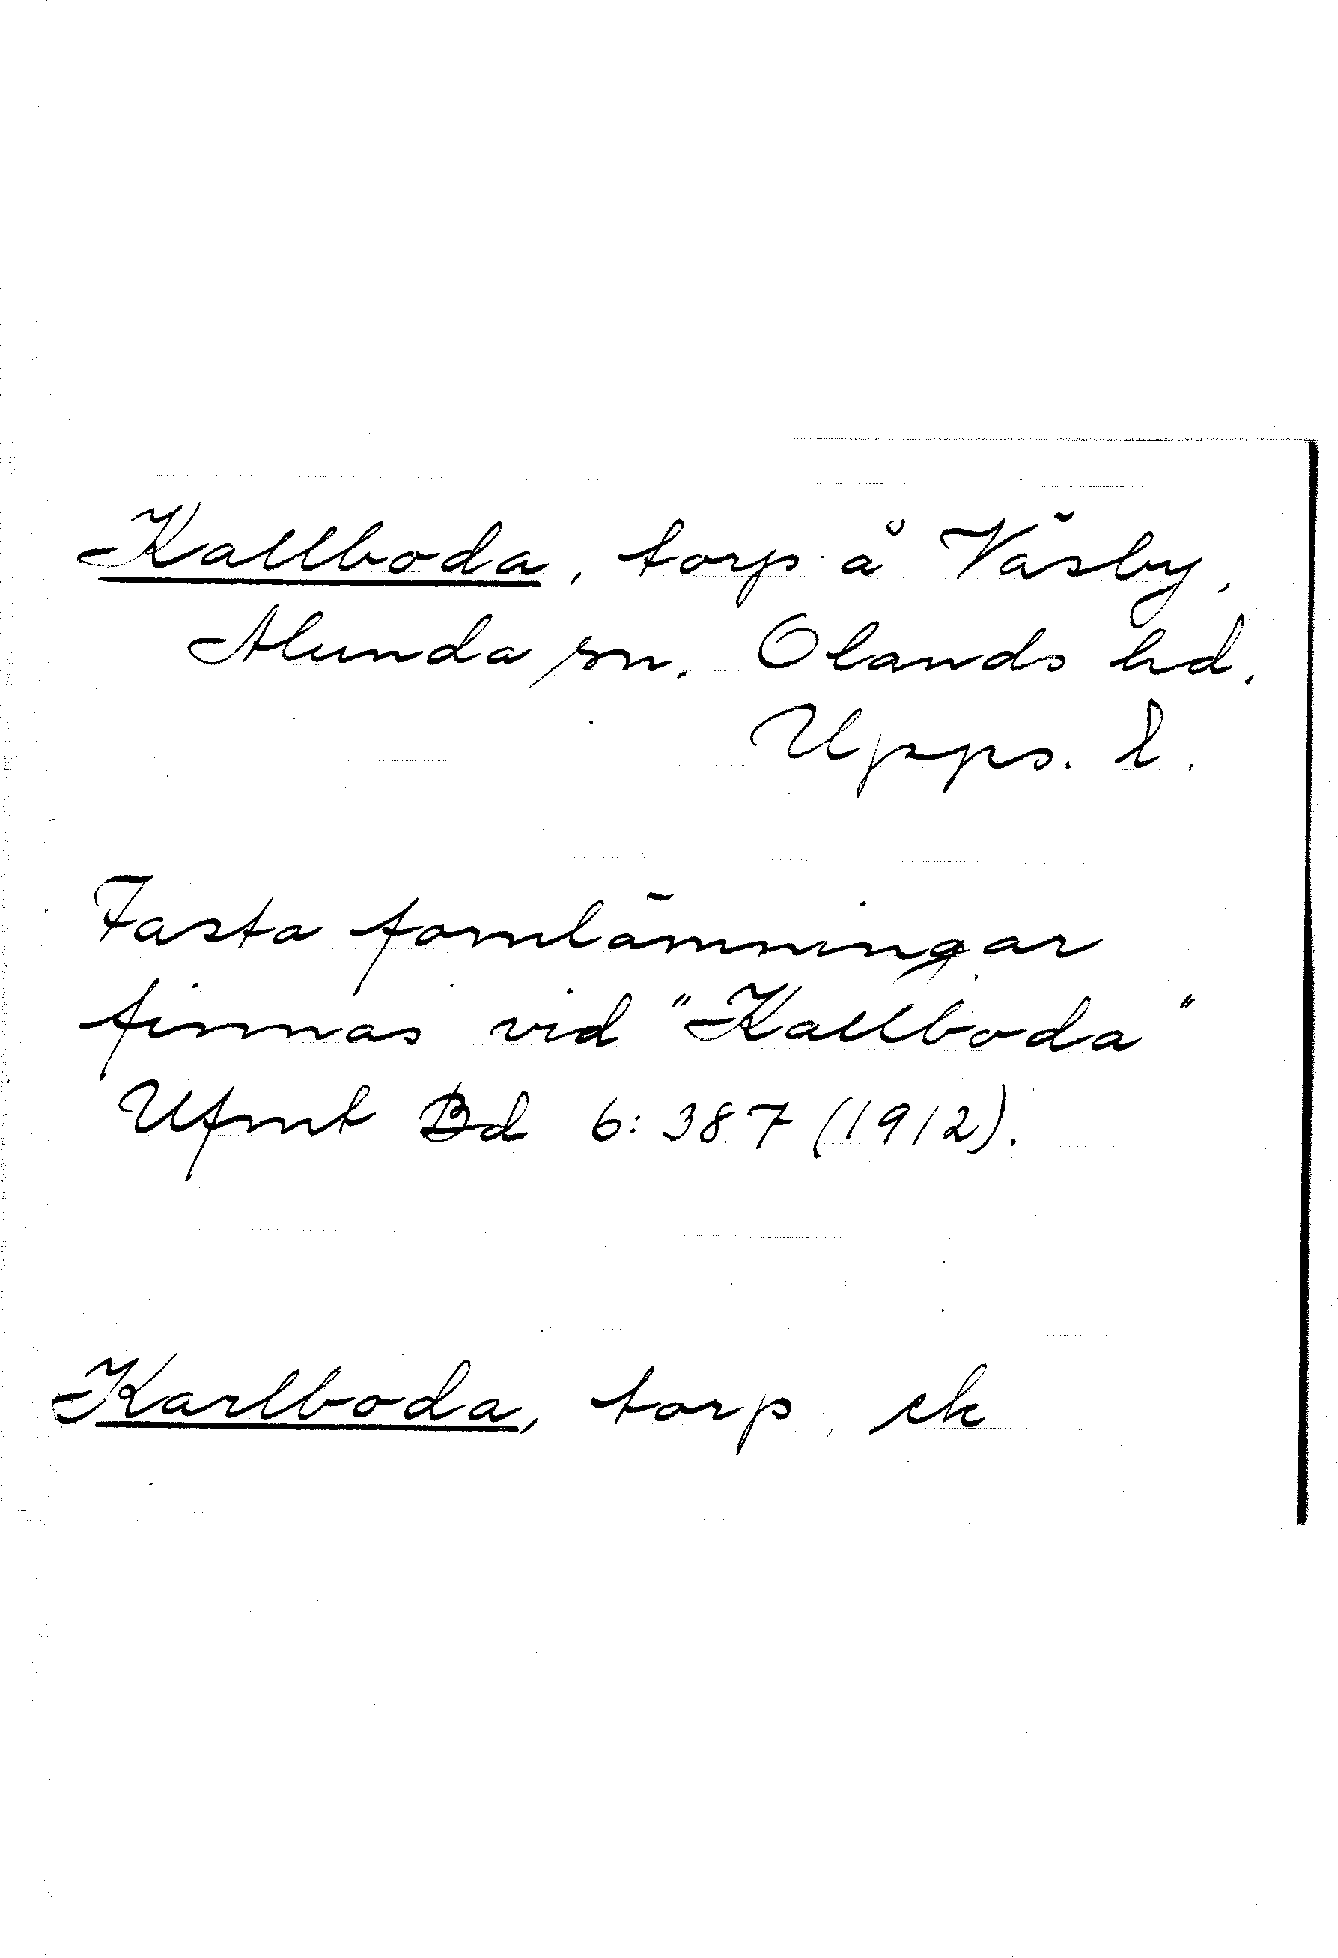 Kallboda, torp å Väsby,
Alunda sn. Olands hd.
Upps. l.
Fasta fornlämningar
finnas vid "Kallboda"
Ufmt Bd 6: 387 (1912).
Karlboda, torp, ek